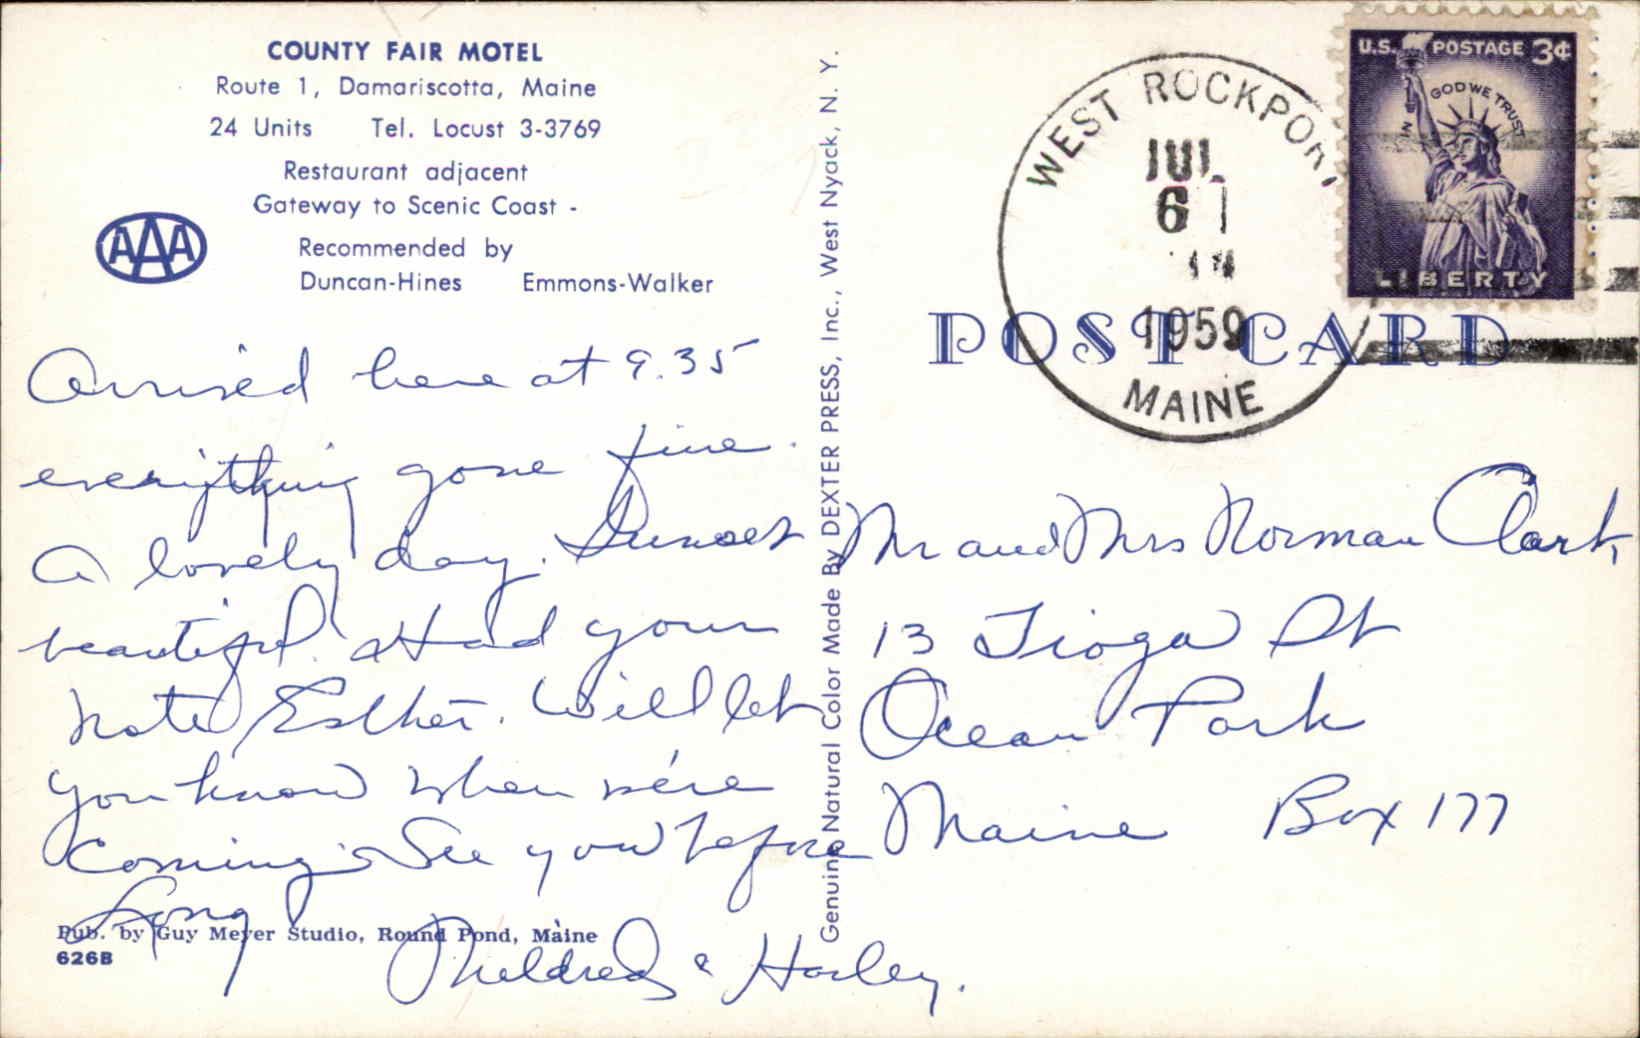 COUNTY FAIR MOTEL
Route 1, Damariscotta, Maine
24 Units Tel. Locust 3-3769
Restaurant adjacent
Gateway to Scenic Coast -
AAA
Recommended by
Duncan-Hines Emmons-Walker
Arrived here at 9.35
everything gone fine.
A lovely day. Sunset
beautiful. Had your
note Esther. Will let
you know when we're
coming. See you before
Long
Mildred & Harley.
Pub. by Guy Meyer Studio, Round Pond, Maine
626B
Genuine Natural Color Made By DEXTER PRESS, Inc., West Nyack, N. Y.
WEST ROCKPORT
JUL
6
1959
MAINE
U.S. POSTAGE 3¢
IN GOD WE TRUST
LIBERTY
POST CARD
Mr and Mrs Norman Clark
13 Tioga St
Ocean Park
Maine Box 177